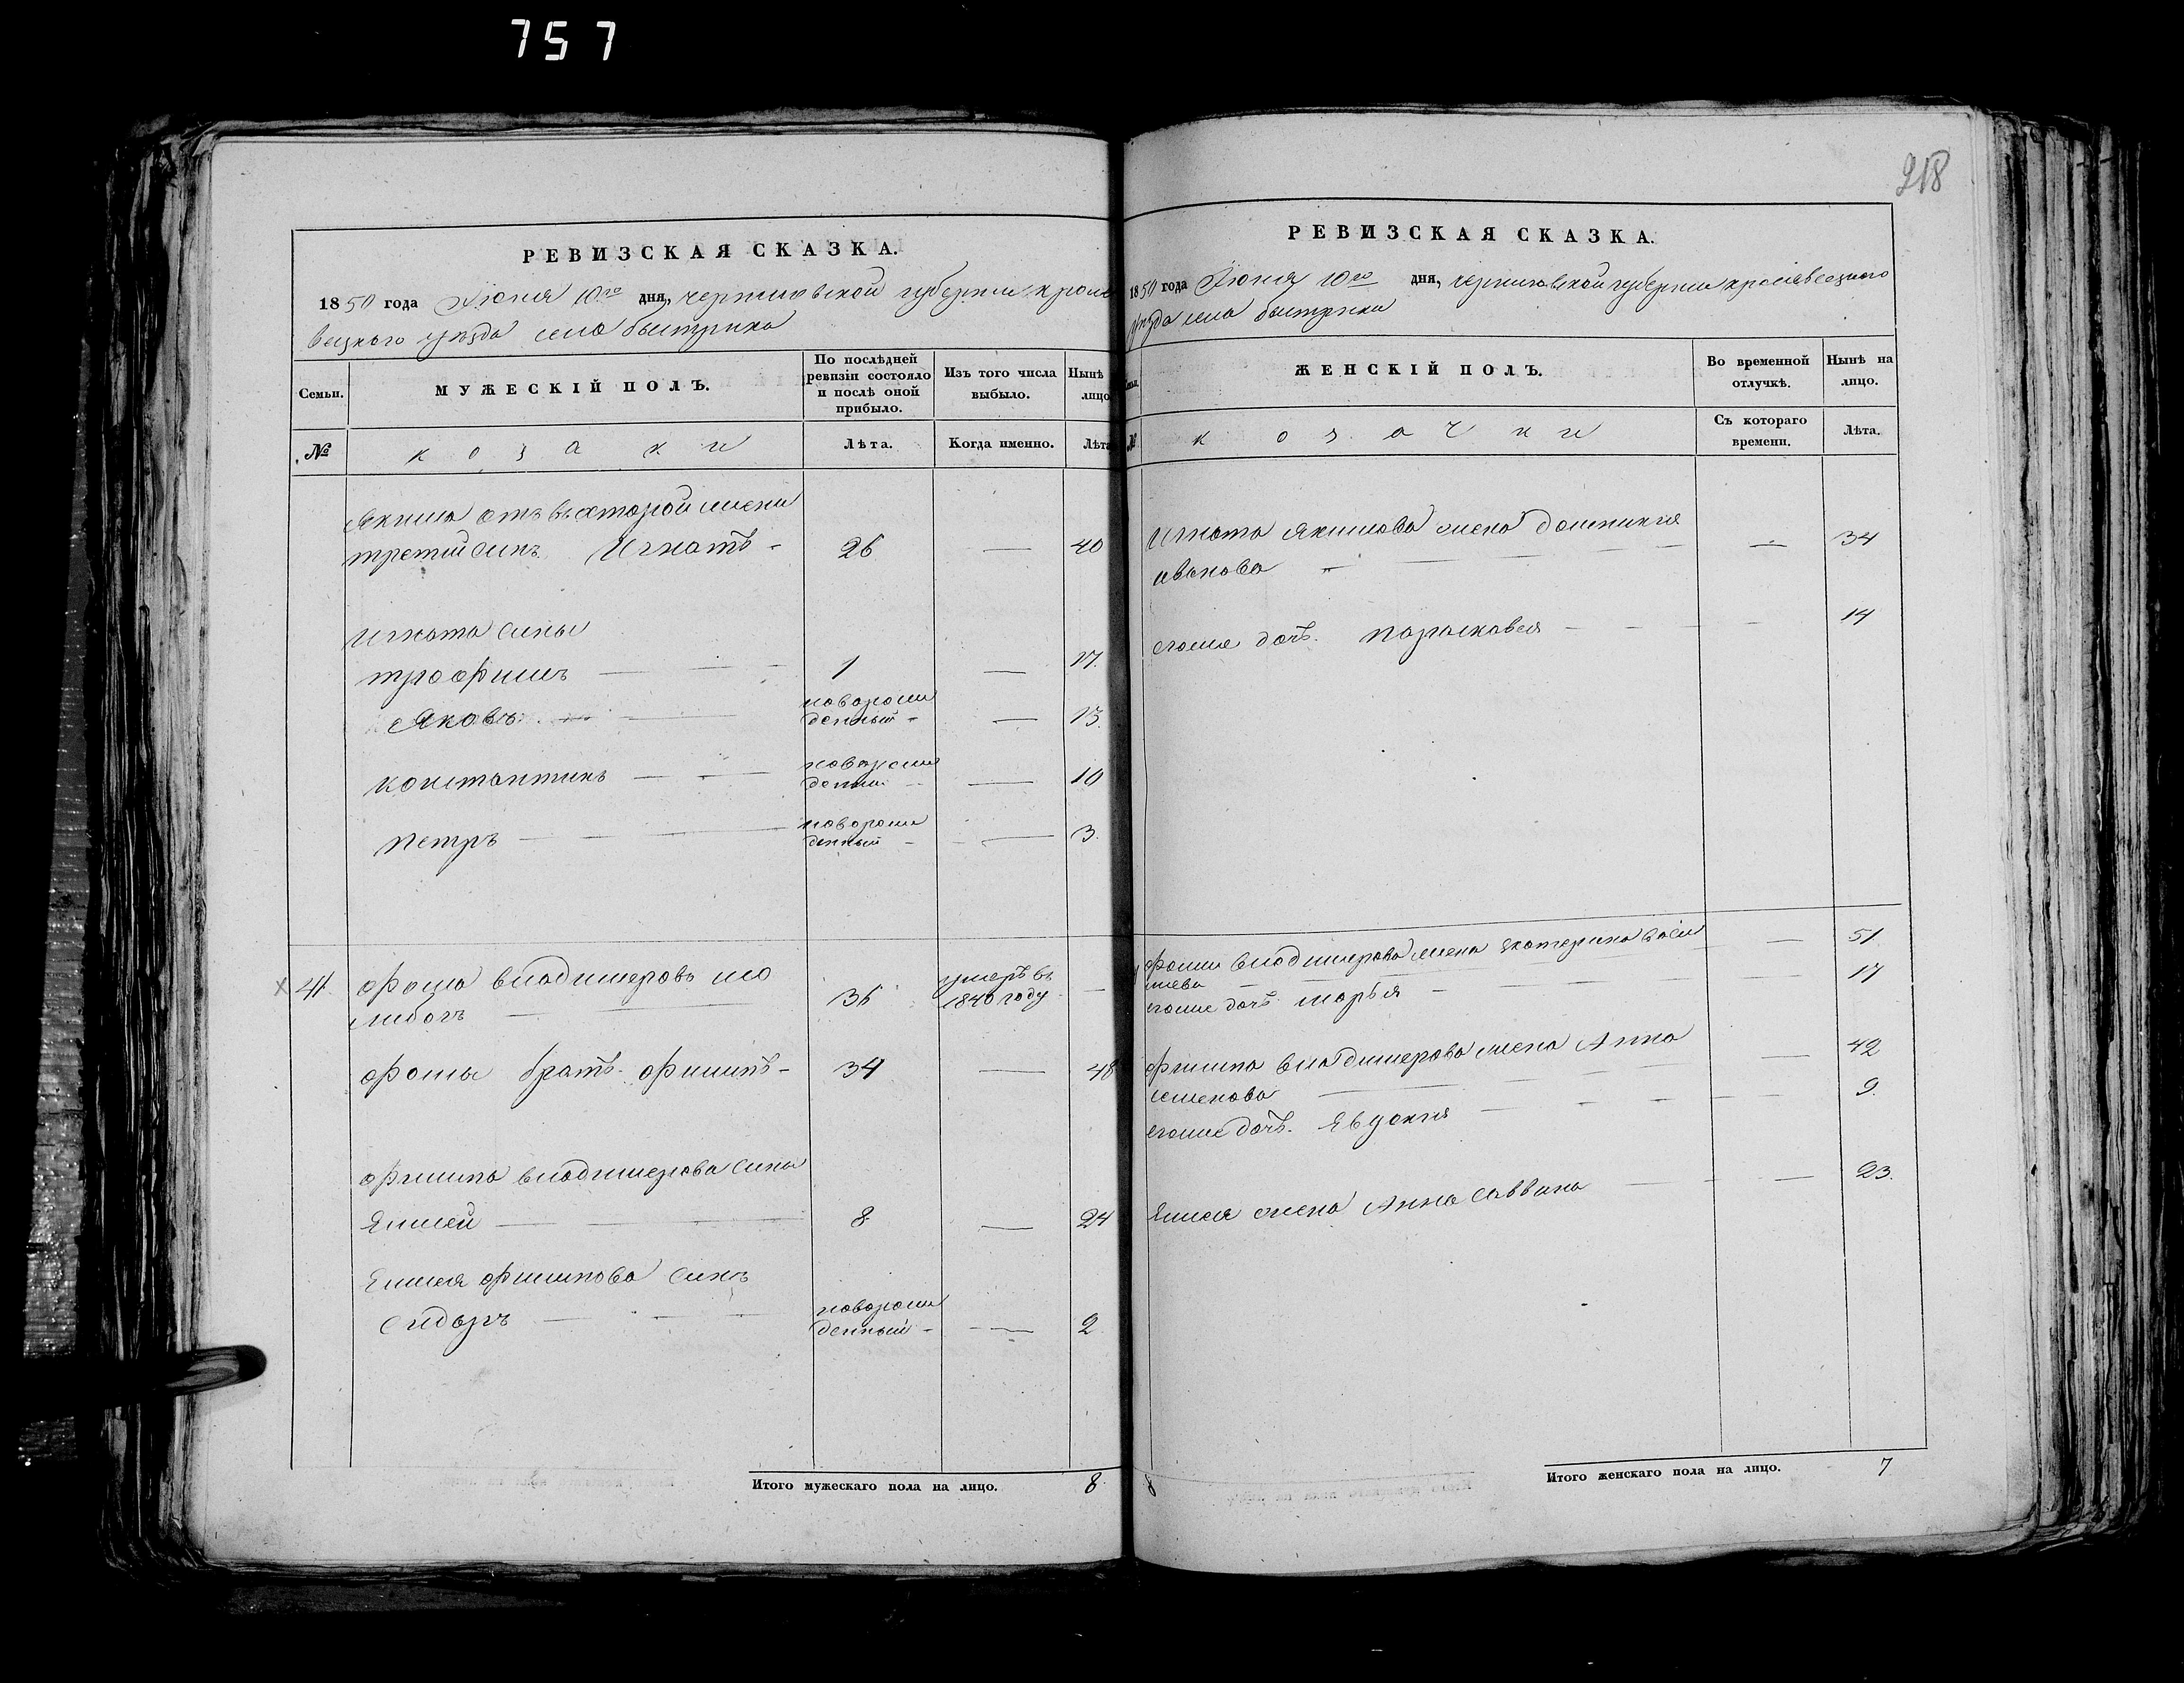 757
218
РЕВИЗСКАЯ СКАЗКА.
1850 года Июня 10го дня, черниговской губернии кроле
вецкого уѣзда села быстрика
Семьи.
МУЖЕСКІЙ ПОЛЪ.
По послѣдней
ревизіи состояло
и послѣ оной
прибыло.
Изъ того числа
выбыло.
Нынѣ
лицо
№
козаки
Лѣта.
Когда именно.
Лѣта
Якима отъ второй жены
третій синъ Игнатъ - 26 — 40
Игната сины
трофимъ — 1 — 17.
Яковъ — новорож
денный - — 13.
константинъ — новорож
денный — 10
петръ — новорож
денный — 3.
41. фома владимеровъ 36 умеръ въ
1840 году —
фомы братъ филипъ - 34 — 48
филипа владимерова сины
Елисей — 8 — 24
Елисея филипова синъ
сидоръ — новорож
денный - — 2
Итого мужескаго пола на лицо. 8
РЕВИЗСКАЯ СКАЗКА.
1850 года Июня 10го дня, черниговской губернии кролевецкого
уѣзда села быстрики
ЖЕНСКІЙ ПОЛЪ.
Во временной
отлучкѣ.
Нынѣ на
лицо.
№
козачки
Съ котораго
времени.
Лѣта.
Игната Якимова жена домникия
иванова — — 34
егоже дочъ. параскавея — 14
фомы владимерова жена екатерина васи
лиева — — 51
егоже дочъ марья — 17
филипа владимерова жена Анна
семенова — — 42
егоже дочъ. Явдокия — 9.
Елисея жена Анна саввина — 23.
Итого женскаго пола на лицо. 7